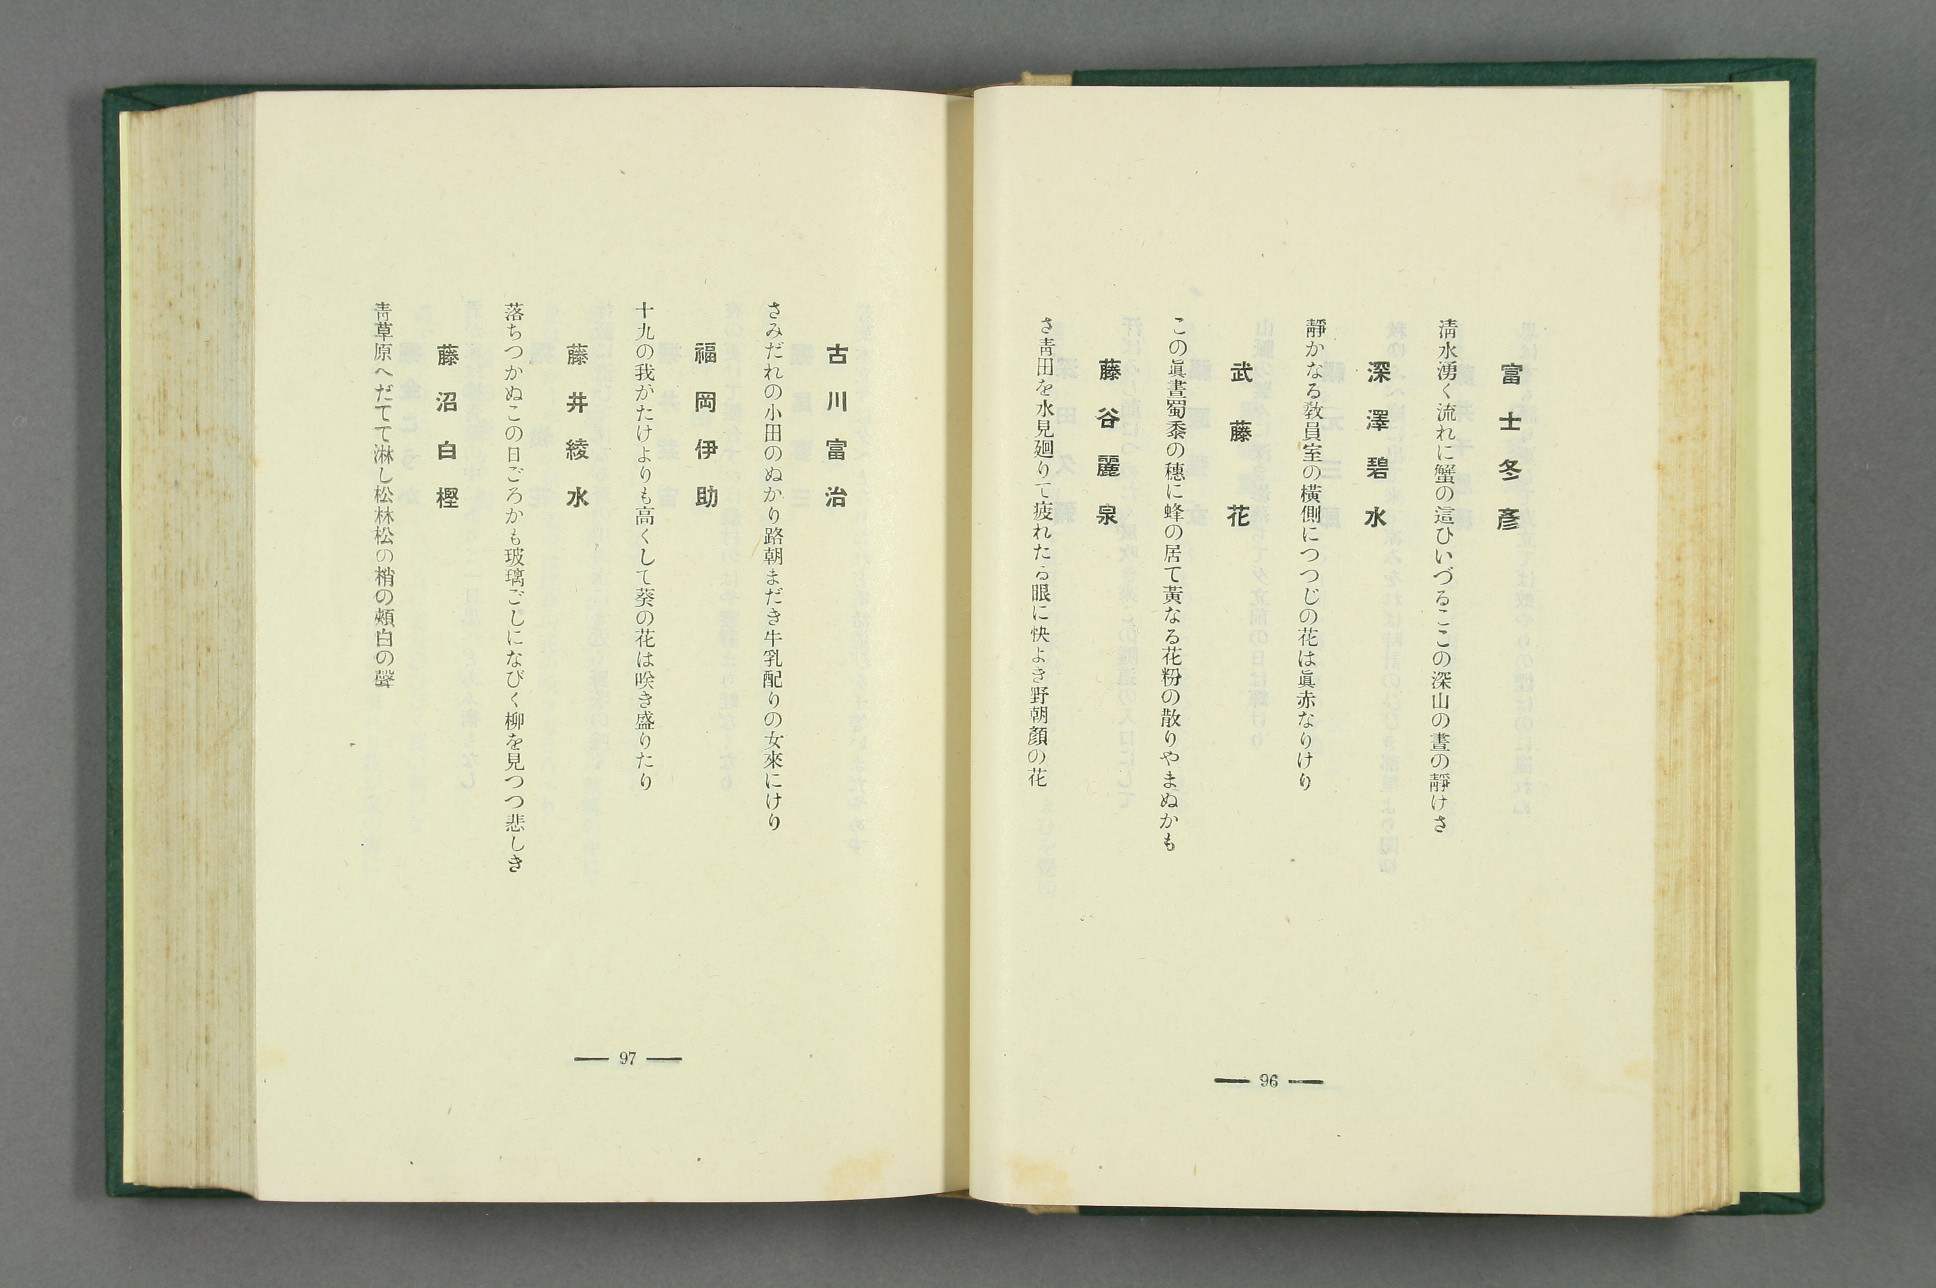 富士冬彦
清水湧く流れに蟹の這ひいづるここの深山の晝の靜けさ
深澤碧水
靜かなる敎員室の橫側につつじの花は眞赤なりけり
武藤花
この眞晝蜀黍の穗に蜂の居て黃なる花粉の散りやまぬかも
藤谷麗泉
さ靑田を水見廻りて疲れたる眼に快よき野朝顏の花
96
古川富治
さみだれの小田のぬかり路朝まだき牛乳配りの女來にけり
福岡伊助
十九の我がたけよりも高くして葵の花は咲き盛りたり
藤井綾水
落ちつかぬこの日ごろかも玻璃ごしになびく柳を見つつ悲しき
藤沼白樫
靑草原へだてて淋し松林松の梢の頰白の聲
97